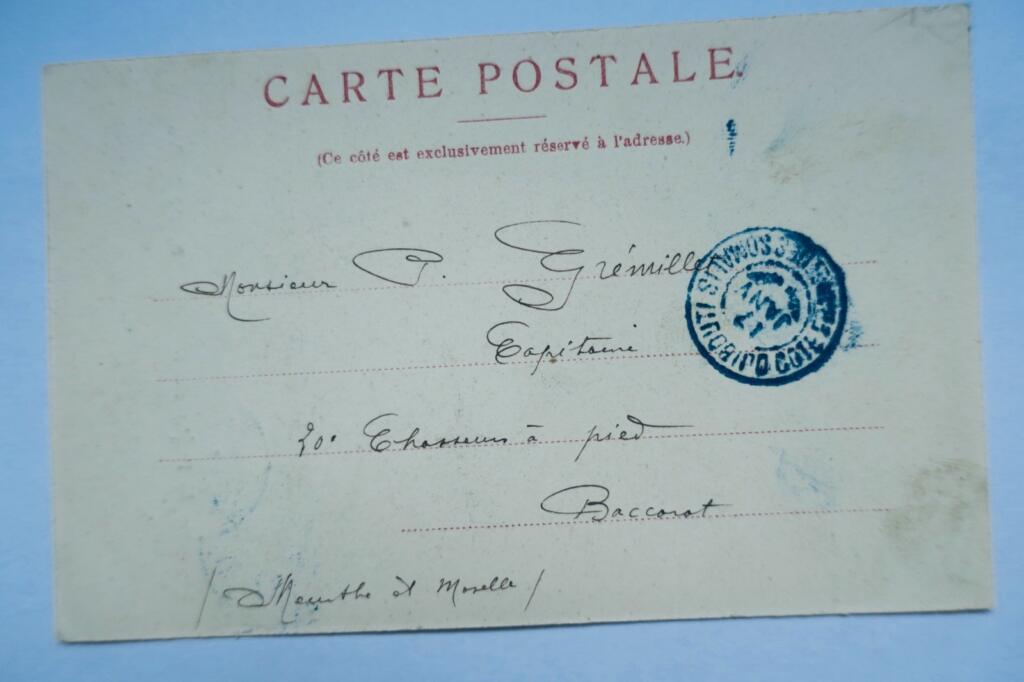 CARTE POSTALE
(Ce côté est exclusivement réservé à l'adresse.)
Monsieur P. Grémillet
Capitaine
20e Chasseurs à pied
Baccarat
(Meurthe et Moselle)
DJIBOUTI COTE FSE DES SOMALIS
21 JANV